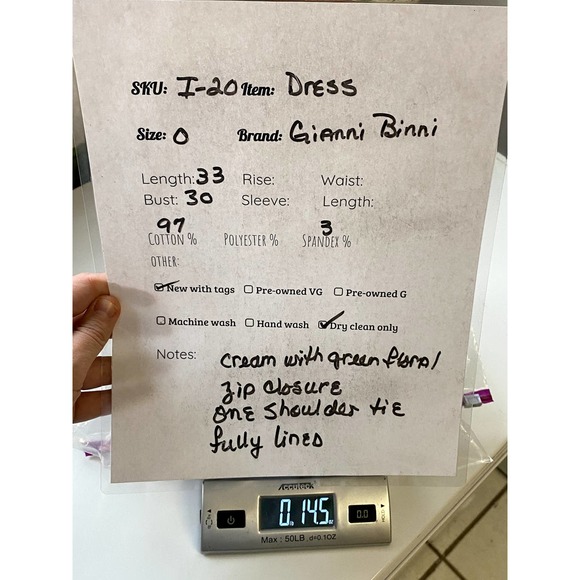 SKU: I-20 Item: Dress
Size: 0 Brand: Gianni Binni
Length: 33 Rise: Waist:
Bust: 30 Sleeve: Length:
97 3
COTTON % POLYESTER % SPANDEX %
OTHER:
New with tags Pre-owned VG Pre-owned G
Machine wash Hand wash Dry clean only
Notes: cream with green floral
zip closure
one shoulder tie
fully lined
Accuteck
0 lb 14.5 oz 0.0 HOLD
Max : 50LB d=0.1OZ